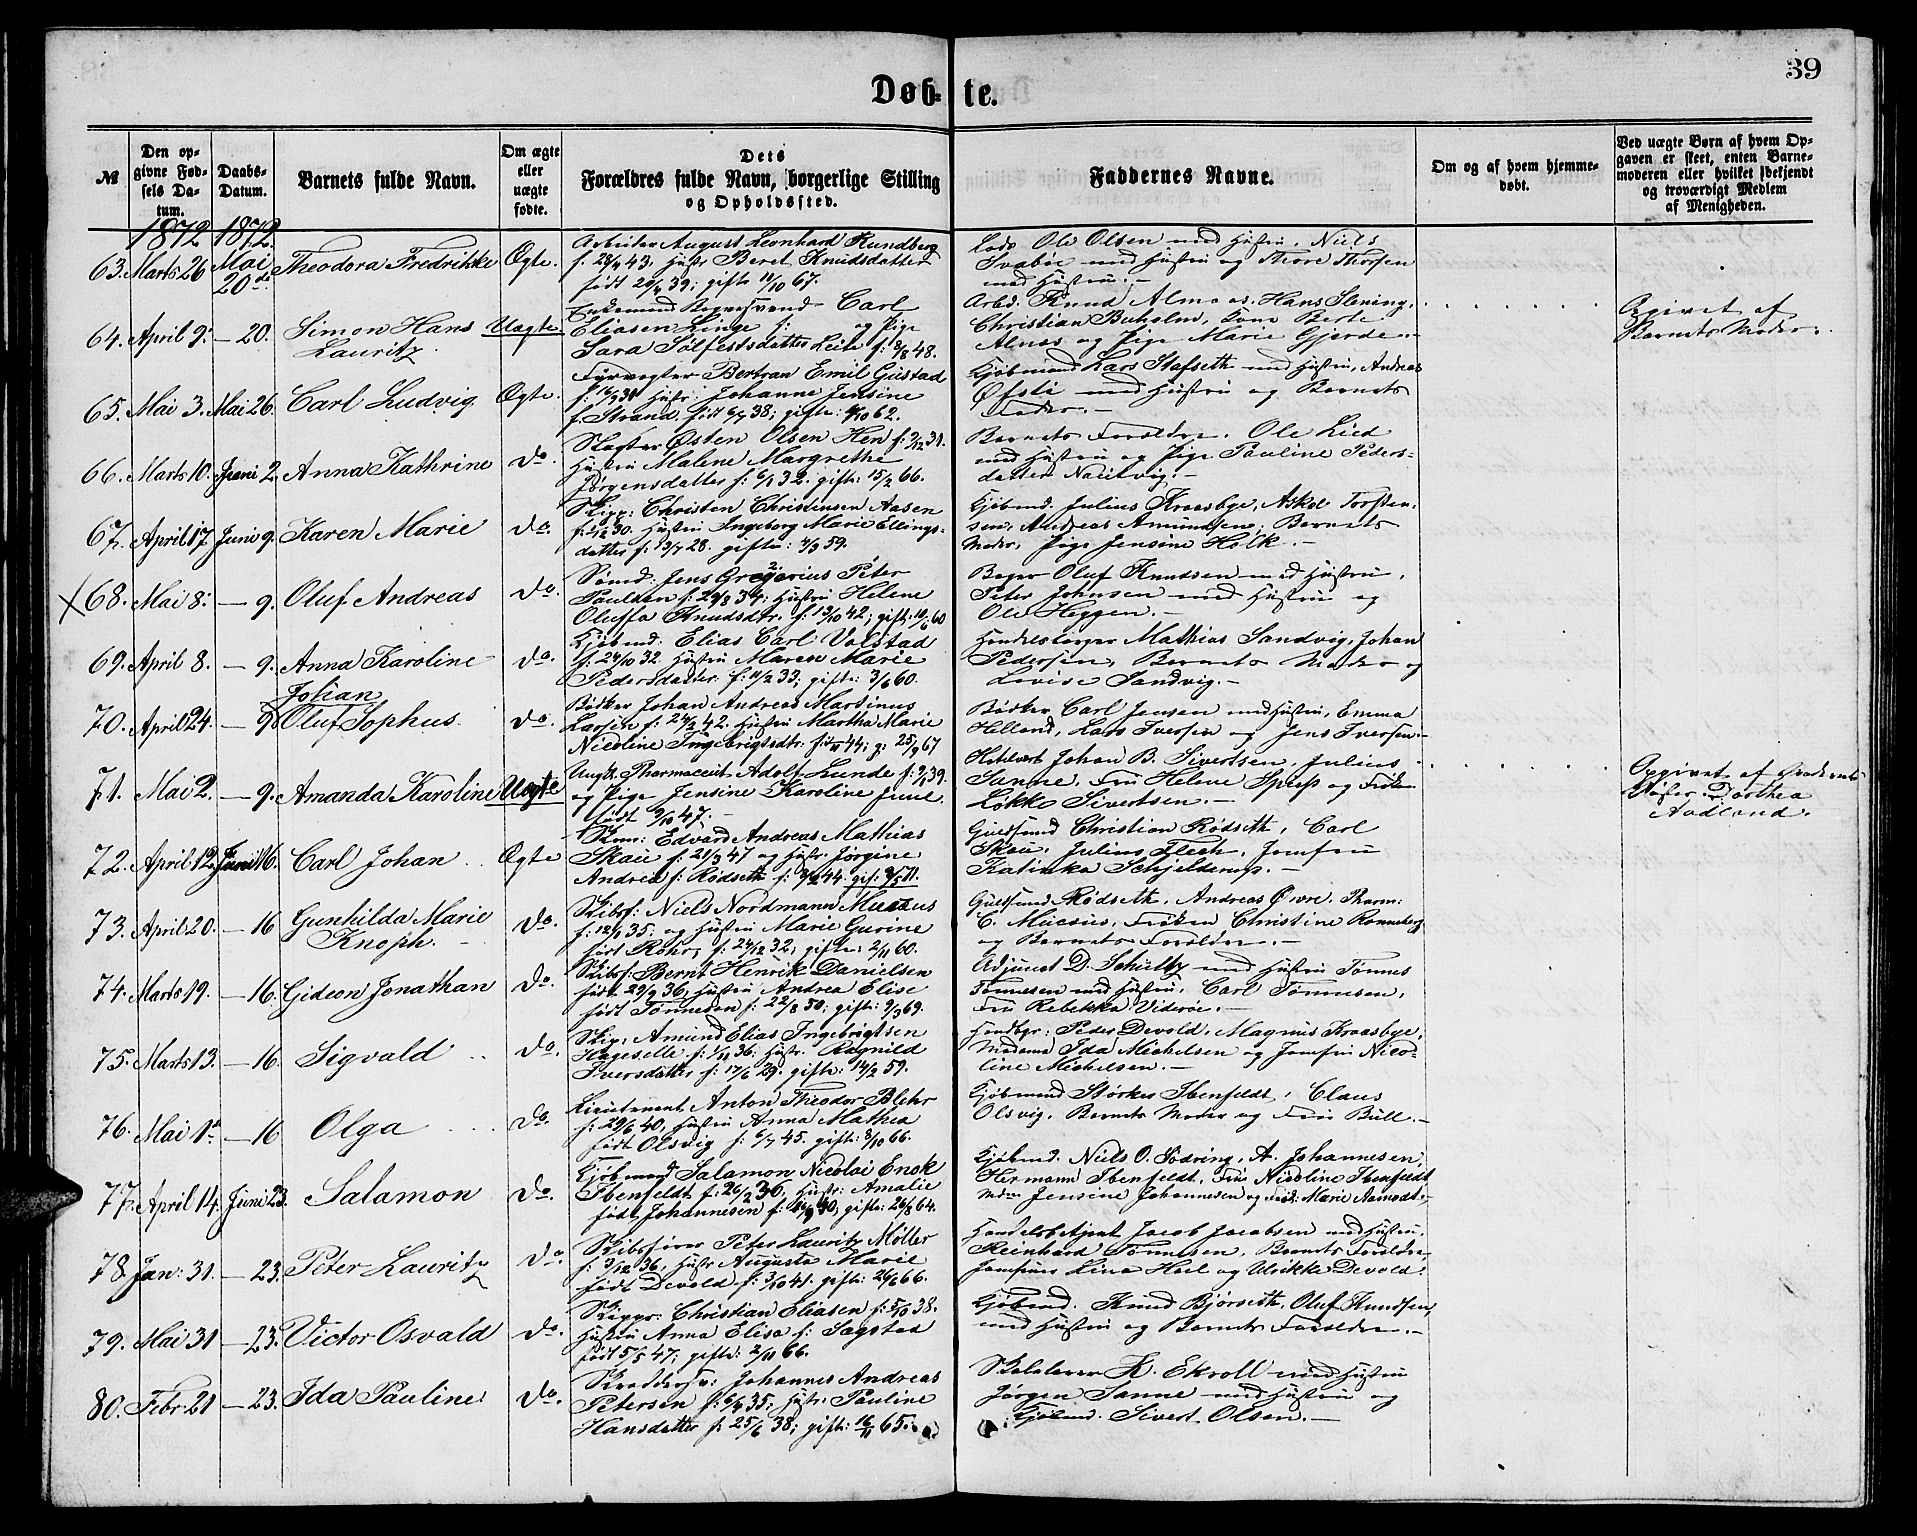 Døb-te.
39
№
Den opgivne Fødsels Datum.
Daabs-Datum.
Barnets fulde Navn.
Om ægte eller uægte fødte.
Dets Forældres fulde Navn, borgerlige Stilling og Opholdssted.
Faddernes Navne.
Om og af hvem hjemmedøbt.
Ved uægte Børn af hvem Opgaven er skeet, enten Barnemoderen eller hvilket bekjendt og troværdigt Medlem af Menigheden.
1872 1872.
63. Marts 26 Mai 20de Theodora Fredrikke Ægte.
Arbeider August Leonhard Rundberg
f. 28/4 43. Hustr. Beret Knudsdatter
født 29/4 39; gifte 11/10 67.
Lods Ole Olsen med Hustru, Niels
Svabøe med Hustru og Thore Thorsen
med Hustru.-
64. April 9. - 20. Simon Hans
Lauritz. Uægte.
Enkemand Bagersvend Carl
Eliasen Linge f: og Pige
Sara Sølfestsdatter Leite f: 8/8 48.
Arbd. Knud Almaas, Hans Slening,
Christian Buholm, Berte
Alnæs og Pige Marie Gjerde.-
Opgivet af
Barnets Moder.
65. Mai 3. Mai 26. Carl Ludvig. Ægte.
Fyrvogter Bertran Emil Gustad
Hustr. Johanne Jensine
f. Strand født 6/7 38; gifte: 62.
Kjøbmand Lars Stafseth med Hustru, Andreas
Øfsti med Hustru og Barnets
Fader.-
66. Marts 10. Juni 2. Anna Kathrine do.
Slagter Østen Olsen Hen f: 31.
Hustru Malene Margrethe
Jørgensdatter f: 6/1 32. gifte: 15/2 66.
Barnets Forældre. Ole Lied
med Hustru og Pige Pauline Peders-
datter Nautvig.-
67. April 17 Juni 9. Karen Marie do.
Skipp: Christen Christensen Aasen
30. Hustru Ingeborg Marie Ellings-
datter f: 13/7 28. gifte: 4/3 59.
Kjøbmd. Julius Kraasbye, Askel Torsten-
sen, Andreas Amundsen, Barnets
Moder, Pige Jensine Holk.-
68. Mai 8. - 9. Oluf Andreas do.
Sømd: Jens Gregorius Peter
Paulsen f: 29/8 34; Hustru Helene
Oluffa Knudsdtr. f: 13/10 42; gift: 10/6 60
Bager Oluf Knudsen med Hustru,
Peter Johnsen med Hustru og
Ole Heggen.-
69. April 8. - 9. Anna Karoline do.
Kjøbmd: Elias Carl Volstad
f. 24/10 32 Hustru Maren Marie
Pedersdatter f: 11/2 33; gifte: 3/6 60.
Handelsborger Mathias Sandvig, Johan
Pedersen, Barnets Moder og
Lovise Sandvig.-
70. April 24. - 9 Johan
Oluf Sophus. do.
Bødker Johan Andreas Martinus
Larsen f: 24/2 42. Hustru Martha Marie
Nicoline Ingebrigtsdtr. 44; g: 25/9 67
Bødker Carl Jensen med Hustru, Emma
Helland, Lars Iversen og Jens Iversen.-
71. Mai 2. - 9. Amanda Karoline Uægte
Ungk. Pharmaceut Adolf Lunde 39.
og Pige Jensine Karoline Juul.
født 9/10 47.
Johan B. Sivertsen, Julius
Sanne, Fru Helene og Frøken
Løkke Sivertsen.-
Opgivet af
Dorthea
Aadland.
72. April 12. Juni 16. Carl Johan Ægte
Edvard Andreas Mathias
Skau f: 21/3 47 og Hustr. Jørgine
Andrea f: Rødseth 44. gif: 3/5 71.
Guldsmed Christian Rødseth, Carl
Skau, Julius Flech, Jomfru
Katinka Schjelderup.-
73. April 20. - 16 Gunhilda Marie
Knoph.- do.
Skibsf: Niels Nordmann Mucsus
f: 12/1 35. og Hustru Marie Gurine
født Rohr, f: 24/12 32; gifte: 2/11 60.
Guldsmed Rødseth, Andreas Øvre, Pharm:
C. Mucsus, Frøken Christine Ronneberg
og Barnets Forældre.-
74. Marts 19. - 16. Gideon Jonathan do.
Skibsf: Bernt Henrik Danielsen
født 29/9 36, Hustru Andrea Elise
født Tønnesen f: 22/8 50; gifte: 9/3 69.
Adjunct D. Schultz med Hustru Tønnes
Tønnesen med Hustru, Carl Tønnesen,
Fru Rebekka Viderøe.-
75. Marts 13. - 16. Sigvald do.
Skip; Amund Elias Ingebrigtsen
f: 1/11 36; Hustr. Ragnild
Iversdatter f: 17/6 29. gifte: 14/2 59.
Handbgr: Peder Devold, Magnus Kraasbye,
Madame Ida Michelsen og Jomfru Nico-
line Michelsen.-
76. Mai 1ste - 16 Olga do.
Lieutenant Anton Theodor Blehr
f: 29/6 40, Hustru Anna Mathea
født Olsvig f: 6/7 45. gifte: 8/10 66.
Kjøbmand Størker Ibenfeldt, Claus
Olsvig, Barnets Moder og Fru Bull.-
77. April 14. Juni 23. Salamon do.
Kjøbmand Salamon Nicolai Enok
Ibenfeldt f: 26/2 36, Hustr: Amalie
født Johannesen f: 40; gifte: 24/8 64.
Kjøbmd. Niels O. Sødring, A. Johannesen,
Hermann Ibenfeldt, Fru Nicoline Ibenfeldt
Jensine Johannesen og Frøk: Marie Aamodt.-
78. Jan: 31. - 23. Peter Lauritz do.
Skibsfører Peter Lauritz Møller
f: 3/12 36, Hustr Augusta Marie
født Devold f: 3/10 41. gifte: 26/6 66.
Handelsbetjent Jacob Jacobsen med Hustru,
Reinhard Tønnesen, Barnets Forældre,
Jomfruer Lina Hoel og Ulrikke Devold.
79. Mai 31 - 23. Victor Osvald do.
Skippr: Christian Eliasen 38.
Hustru Anna Elisa f: Sagstad
født 5/5 47; gifte: 2/11 66.
Kjøbmd. Knud Bjørseth, Oluf Knudsen,
med Hustru og Barnets Forældre.-
80. Febr 21 - 23. Ida Pauline do.
Skræddersv: Johannes Andreas
Petersen f: 6/4 35; Hustr: Pauline
Hansdatter f: 25/6 38; gifte: 16/11 65.
Skolelærer K. Ekroll med Hustru
Jørgen Sanne med Hustru og
Kjøbmd. Sivert Olsen.-